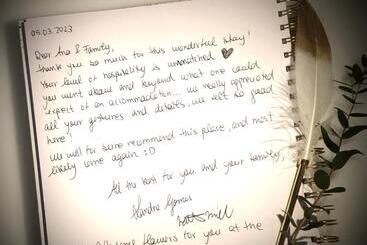 05.03.2023
Dear Ana & Family,
thank you so much for this wonderful stay!
Your level of hospitality is unmatched ♥
you went above and beyond what one could
expect of an accomodation... we really appreciated
all your gestures and details, we felt so good
here!
We will for sure recommend this place, and most
likely come again :D
All the best for you and your family,
flowers for you at the